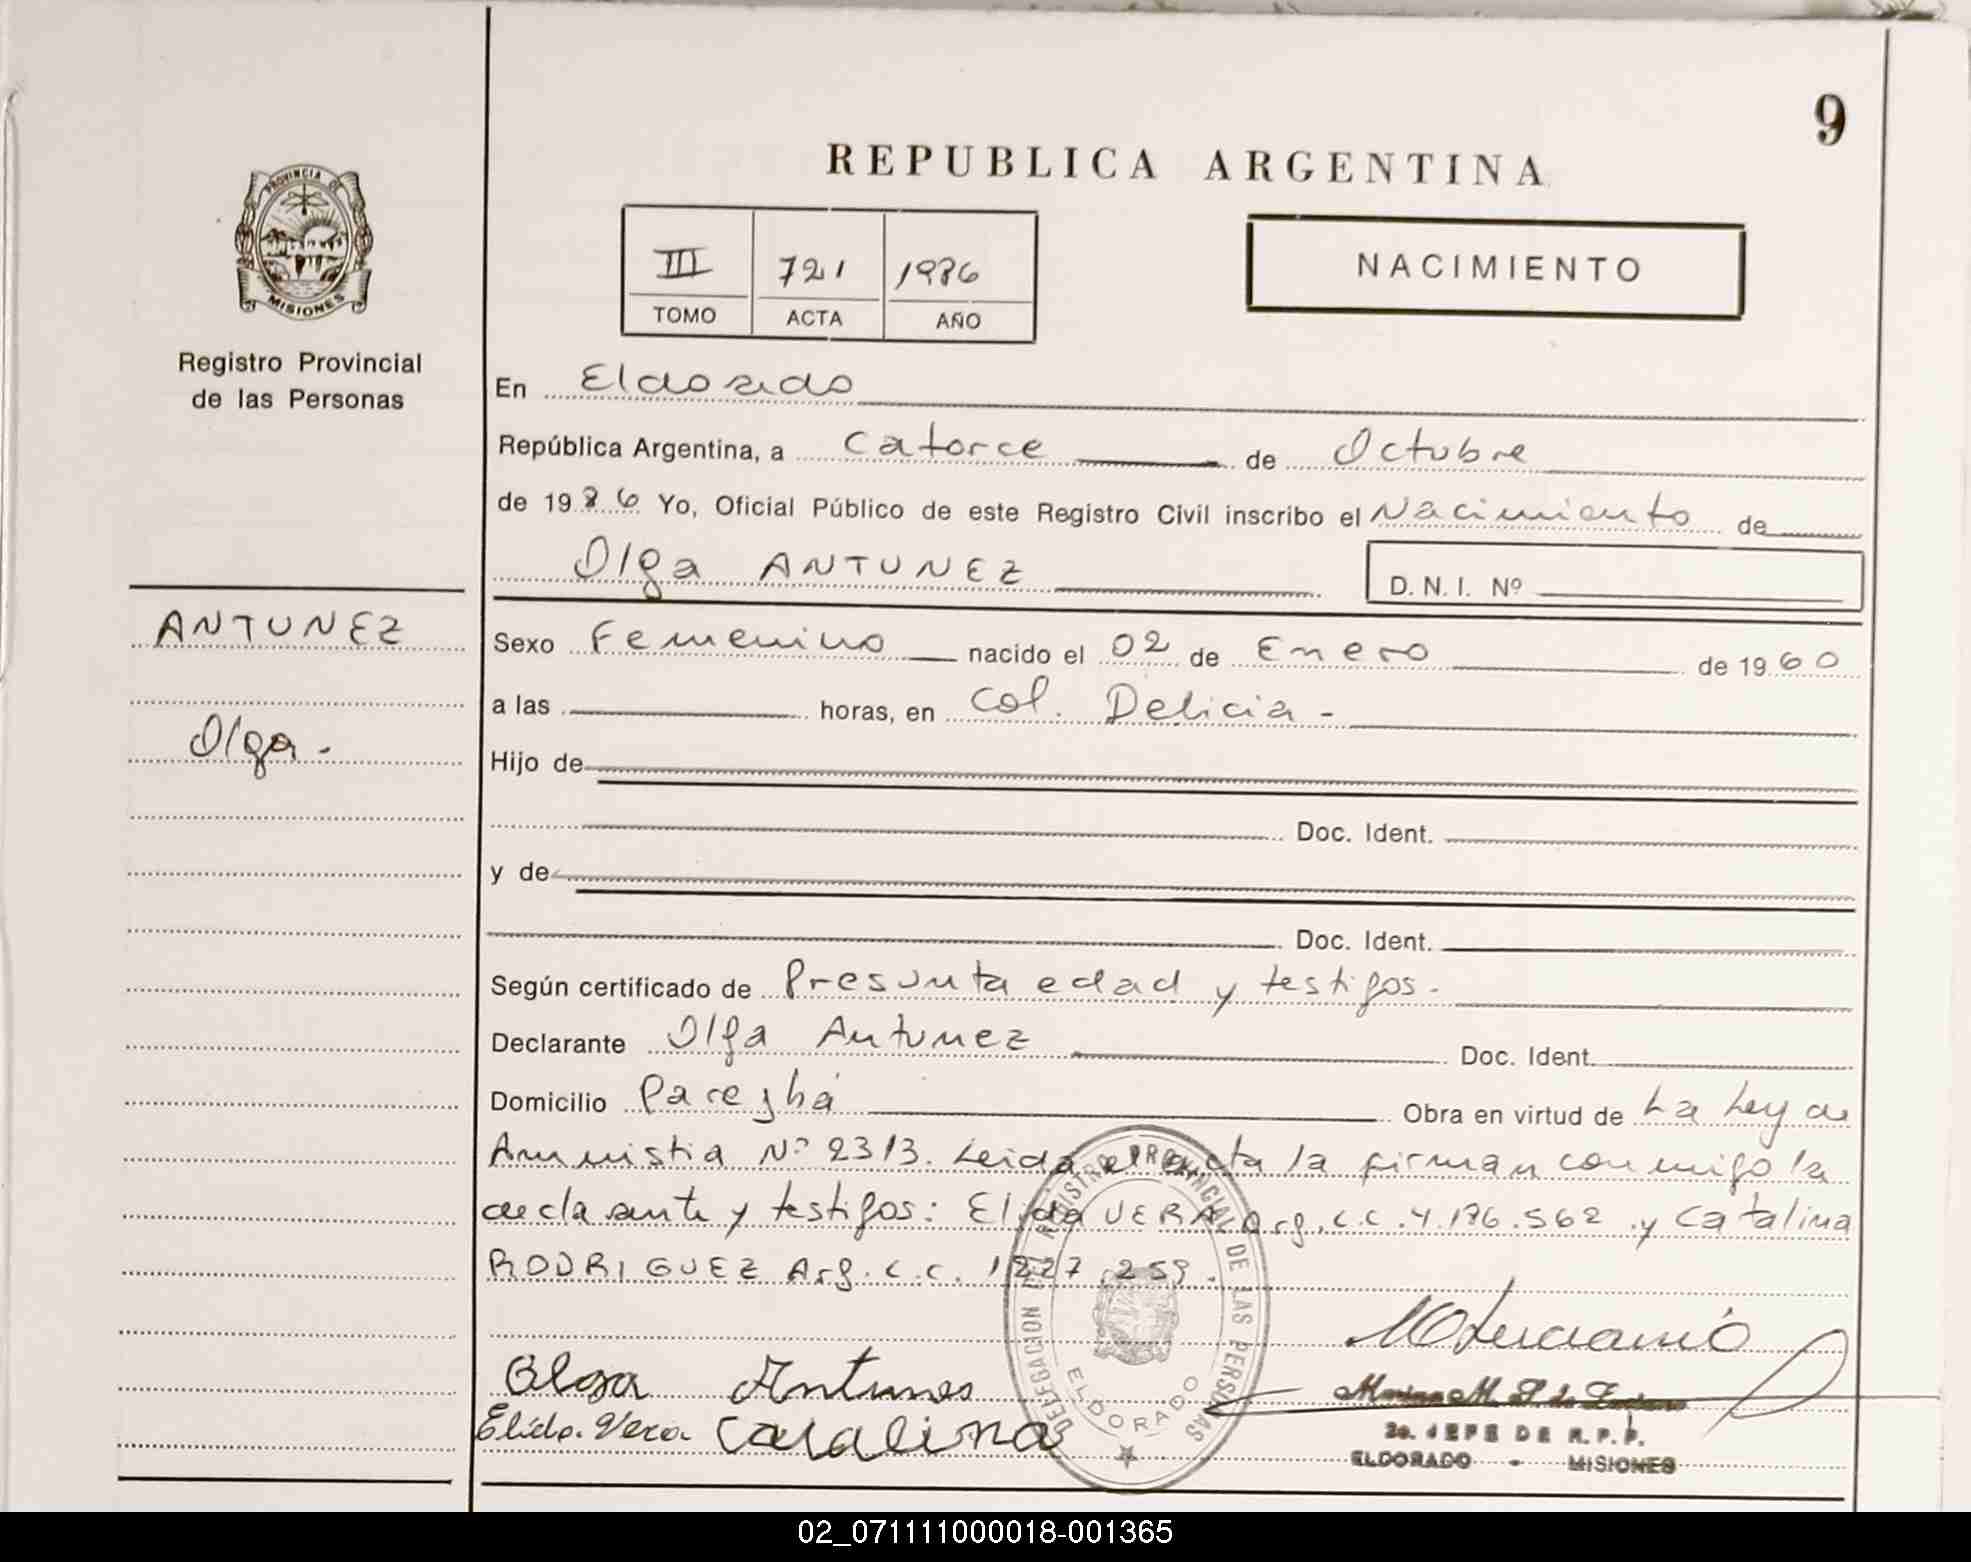 9
REPUBLICA ARGENTINA
PROVINCIA DE
MISIONES
III 721 1986
TOMO ACTA AÑO
NACIMIENTO
Registro Provincial
de las Personas
En Eldorado
República Argentina, a catorce de Octubre
de 1986 Yo, Oficial Público de este Registro Civil inscribo el Nacimiento de
Olga ANTUNEZ D.N.I. Nº
ANTUNEZ
Olga.
Sexo Femenino nacido el 02 de Enero de 1960
a las horas, en Col. Delicia -
Hijo de
Doc. Ident.
y de
Doc. Ident.
Según certificado de Presunta edad y testigos.
Declarante Olga Antunez Doc. Ident.
Domicilio Obra en virtud de La Ley de
Amnistia Nº 2313. Leida el acta la firman conmigo la
declarante y testigos: Elida VERA Arg. C.C. 4.196.562 y Catalina
RODRIGUEZ Arg. C.C. 1227.259.
Olga Antunes
Elida. Vera Catalina
DELEGACION DEL REGISTRO PROVINCIAL DE LAS PERSONAS
ELDORADO
2o. JEFE DE R.P.P.
ELDORADO - MISIONES
02_071111000018-001365